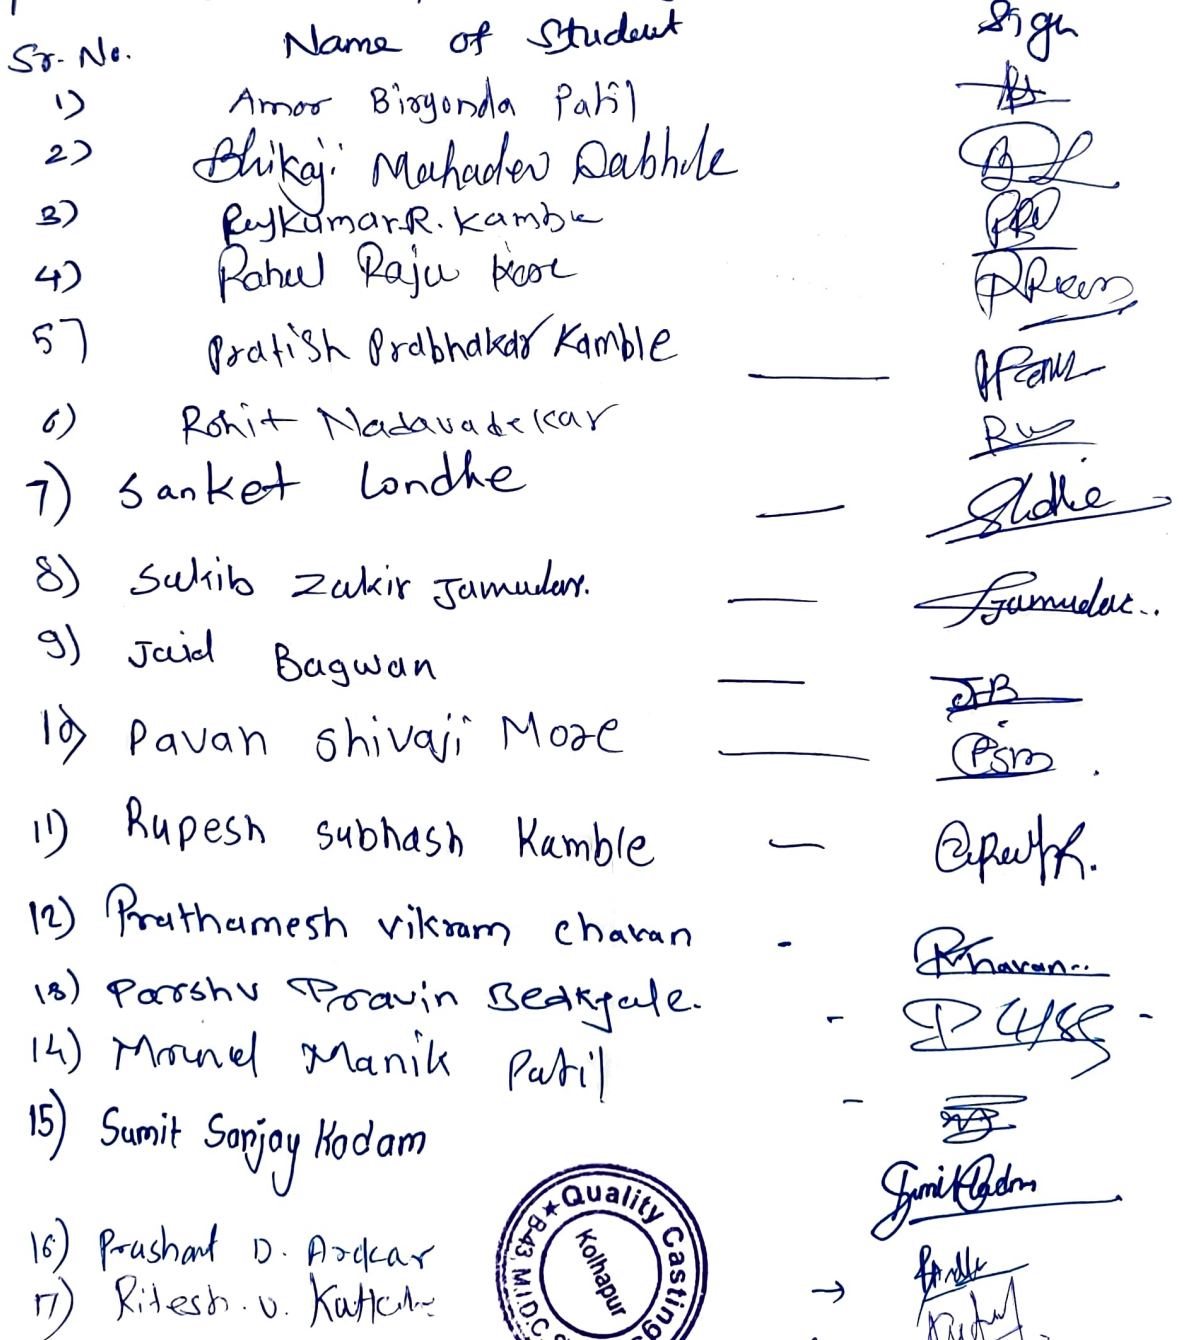 Sr. No. Name of Student Sign
1) Amar Birgonda Patil
2) Bhikaji Mahadev Dabhole
3) Rajkumar R. Kamble
4) Rahul Raju
5) Pratish Prabhakar Kamble
6) Rohit Nadavadekar
7) Sanket Londhe
8) Sakib Zakir Jamadar.
9) Jaid Bagwan
10) Pavan Shivaji More
11) Rupesh Subhash Kamble
12) Prathamesh vikram chavan
13) Parshv Pravin Bedkyale.
14) Manik Patil
15) Sumit Sanjay Kadam
16) Prashant D. Ardkar
17) Ritesh. v.
Quality Casting
B-43, M.I.D.C.
Kolhapur